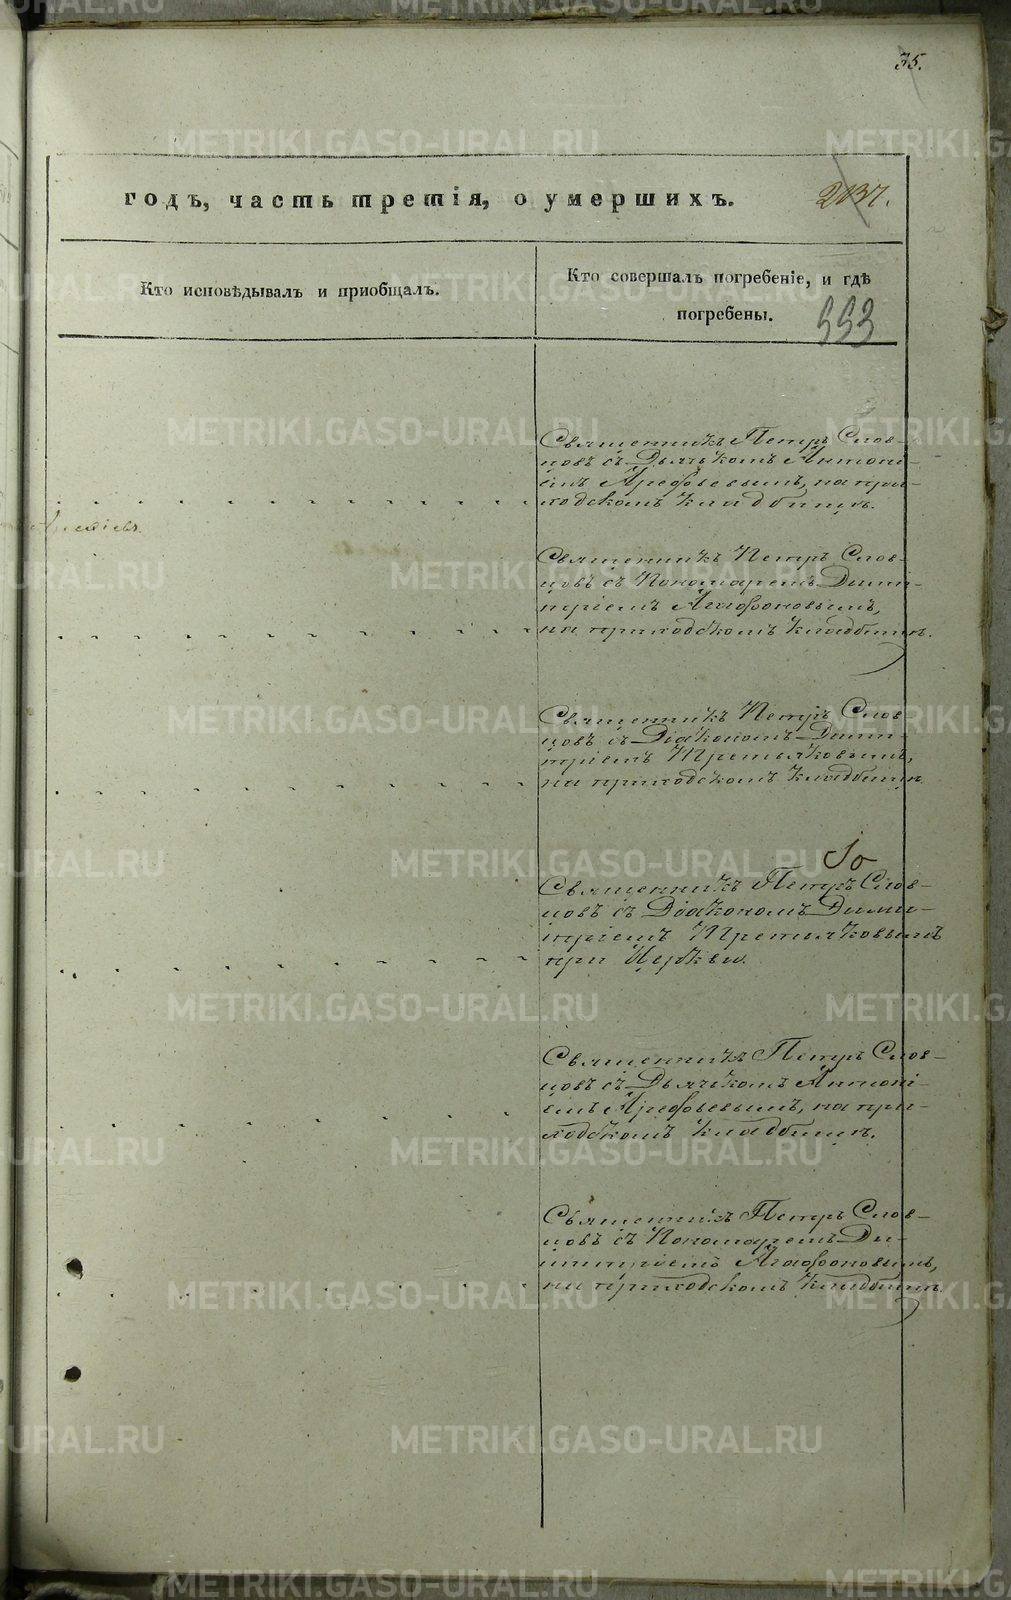 35.
годъ, часть третія, о умершихъ.
2137.
Кто исповѣдывалъ и приобщалъ.
Кто совершалъ погребеніе, и гдѣ
погребены.
553
Священникъ Петръ Слов-
цовъ съ Дьячкомъ Антоні-
емъ Арефьевымъ, на при-
ходскомъ кладбищѣ.
Священникъ Петръ Слов-
цовъ съ Пономаремъ Дими-
тріемъ Агафоновымъ,
на приходскомъ кладбищѣ.
Священникъ Петръ Слов
цовъ съ Діакономъ Дими-
тріемъ Третьяковымъ,
на приходскомъ кладбищѣ.
Священникъ Петръ Слов-
цовъ съ Діакономъ Дими-
тріемъ Третьяковымъ
при Церкви.
Священникъ Петръ Слов-
цовъ съ Дьячкомъ Антоні-
емъ Арефьевымъ, на при-
ходскомъ кладбищѣ.
Священникъ Петръ Слов-
цовъ съ Пономаремъ Ди-
митріемъ Агафоновымъ,
на приходскомъ кладбищѣ.
METRIKI.GASO-URAL.RU